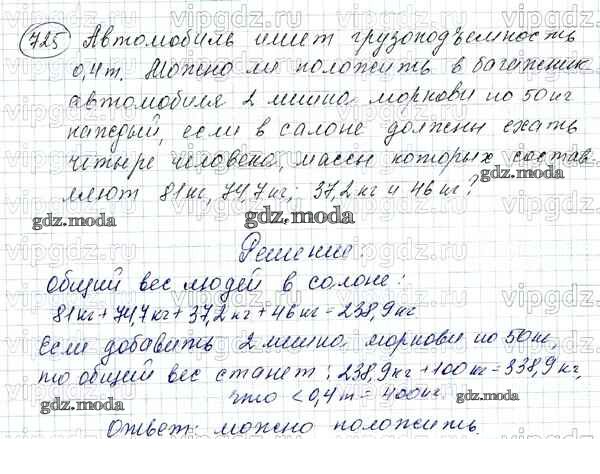 725 Автомобиль имеет грузоподъемность
0,4т. Можно ли положить в багажник
автомобиля 2 мешка моркови по 50кг
каждый, если в салоне должны ехать
четыре человека, массы которых состав-
ляют 81кг, 74,7кг; 37,2кг и 46кг?
gdz.moda
gdz.moda
gdz.moda
Решение:
Общий вес людей в салоне:
81кг+74,7кг+37,2кг+46кг=238,9кг
Если добавить 2 мешка моркови по 50кг,
то общий вес станет: 238,9кг+100кг=338,9кг,
что <0,4т=400кг.
gdz.moda
gdz.moda
Ответ: можно положить.
vipgdz.ru